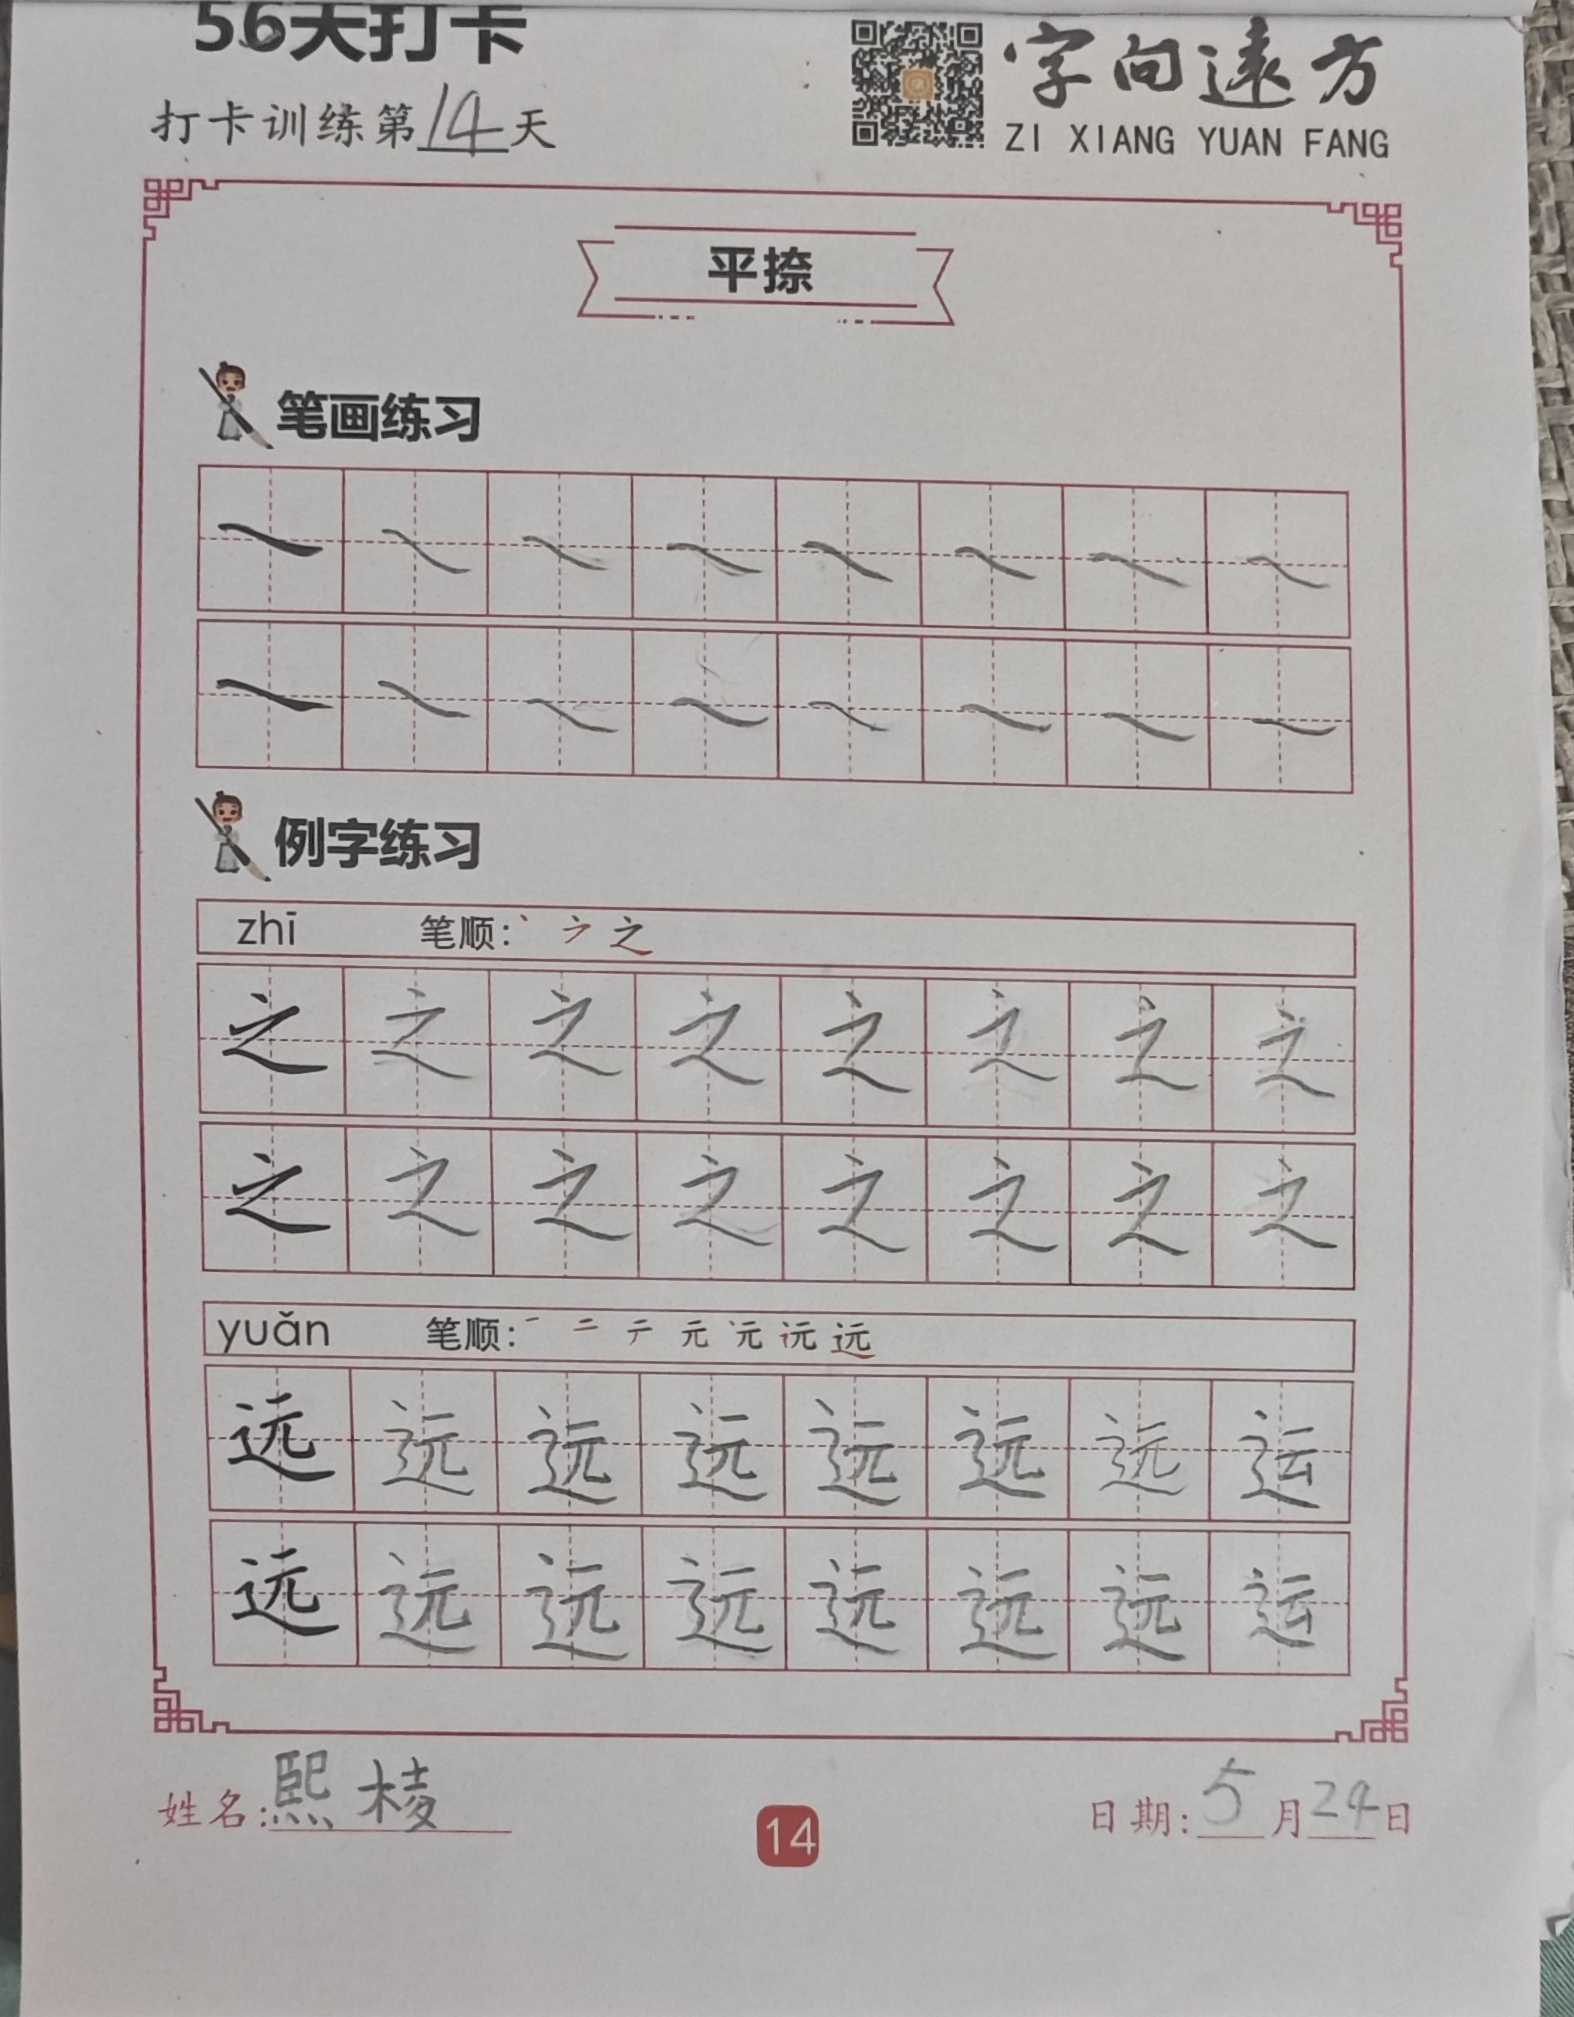 56天打卡
字向遠方
打卡训练第14天
ZI XIANG YUAN FANG
平捺
笔画练习
例字练习
zhī 笔顺:
之 之 之 之 之 之 之 之
之 之 之 之 之 之 之 之
yuǎn 笔顺: 一 二 テ 元 远
远 远 远 远 远 远 远 运
远 远 远 远 远 远 远 运
姓名:熙棱
14
日期:5月24日